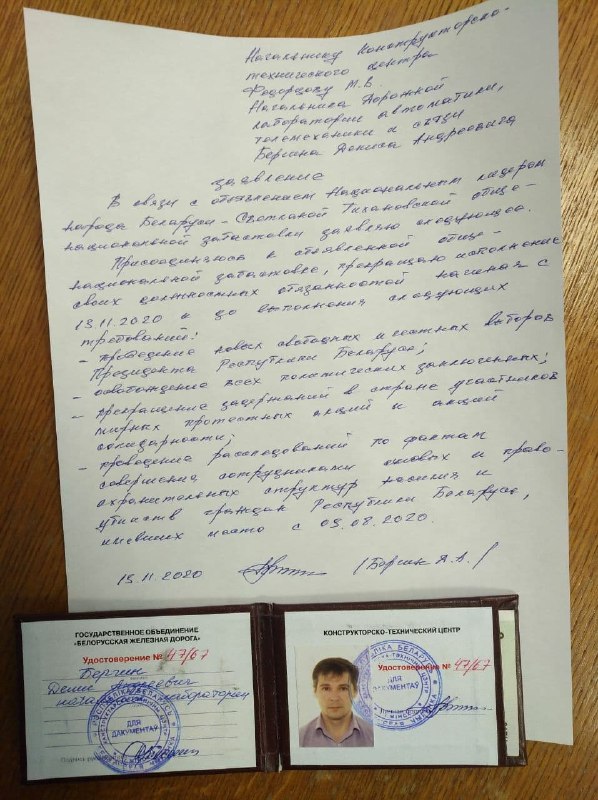 Начальнику Конструкторско-
технического центра
Федорцову М.В.
Начальника Дорожной
лаборатории автоматики,
телемеханики и связи
Дениса Андреевича
заявление
В связи с объявлением Национальным лидером
народа Беларуси - Светланой Тихановской обще-
национальной забастовки заявляю следующее.
Присоединяюсь к объявленной обще-
национальной забастовке, прекращаю исполнение
своих должностных обязанностей начиная с
13.11.2020 и до выполнения следующих
требований:
- проведение новых свободных и честных выборов
Президента Республики Беларусь;
- освобождение всех политических заключенных;
- прекращение задержаний в стране участников
мирных протестных акций и акций
солидарности;
- проведение расследований по фактам
совершения сотрудниками силовых и право-
охранительных структур насилия и
убийств граждан Республики Беларусь,
имевших место с 09.08.2020.
13.11.2020
ГОСУДАРСТВЕННОЕ ОБЪЕДИНЕНИЕ
«БЕЛОРУССКАЯ ЖЕЛЕЗНАЯ ДОРОГА»
Удостоверение № 47/67
Денис Андреевич
начальник лаборатории
ДЛЯ
ДАКУМЕНТАЎ
КОНСТРУКТОРСКО-ТЕХНИЧЕСКИЙ ЦЕНТР
Удостоверение № 47/67
ДЛЯ
ДАКУМЕНТАЎ